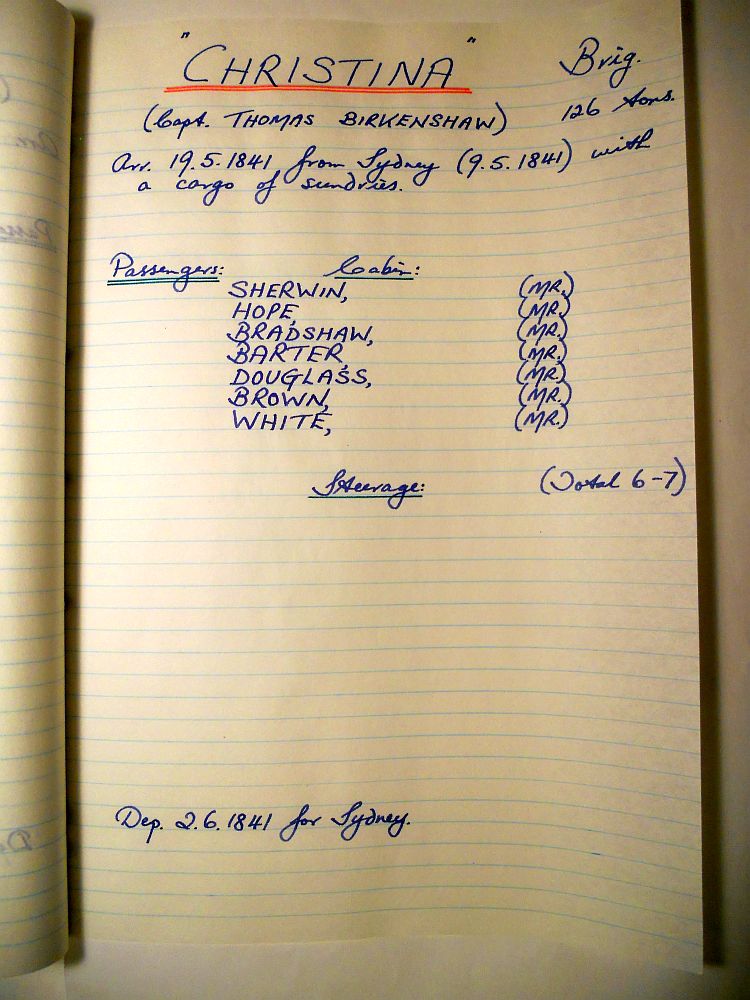 "CHRISTINA" Brig.
(Capt. THOMAS BIRKENSHAW) 126 tons.
Arr. 19.5.1841 from Sydney (9.5.1841) with
a cargo of sundries.
Passengers: Cabin:
SHERWIN, (MR.)
HOPE, (MR.)
BRADSHAW, (MR.)
BARTER, (MR.)
DOUGLASS, (MR.)
BROWN, (MR.)
WHITE, (MR.)
Steerage: (Total 6-7)
Dep. 2.6.1841 for Sydney.